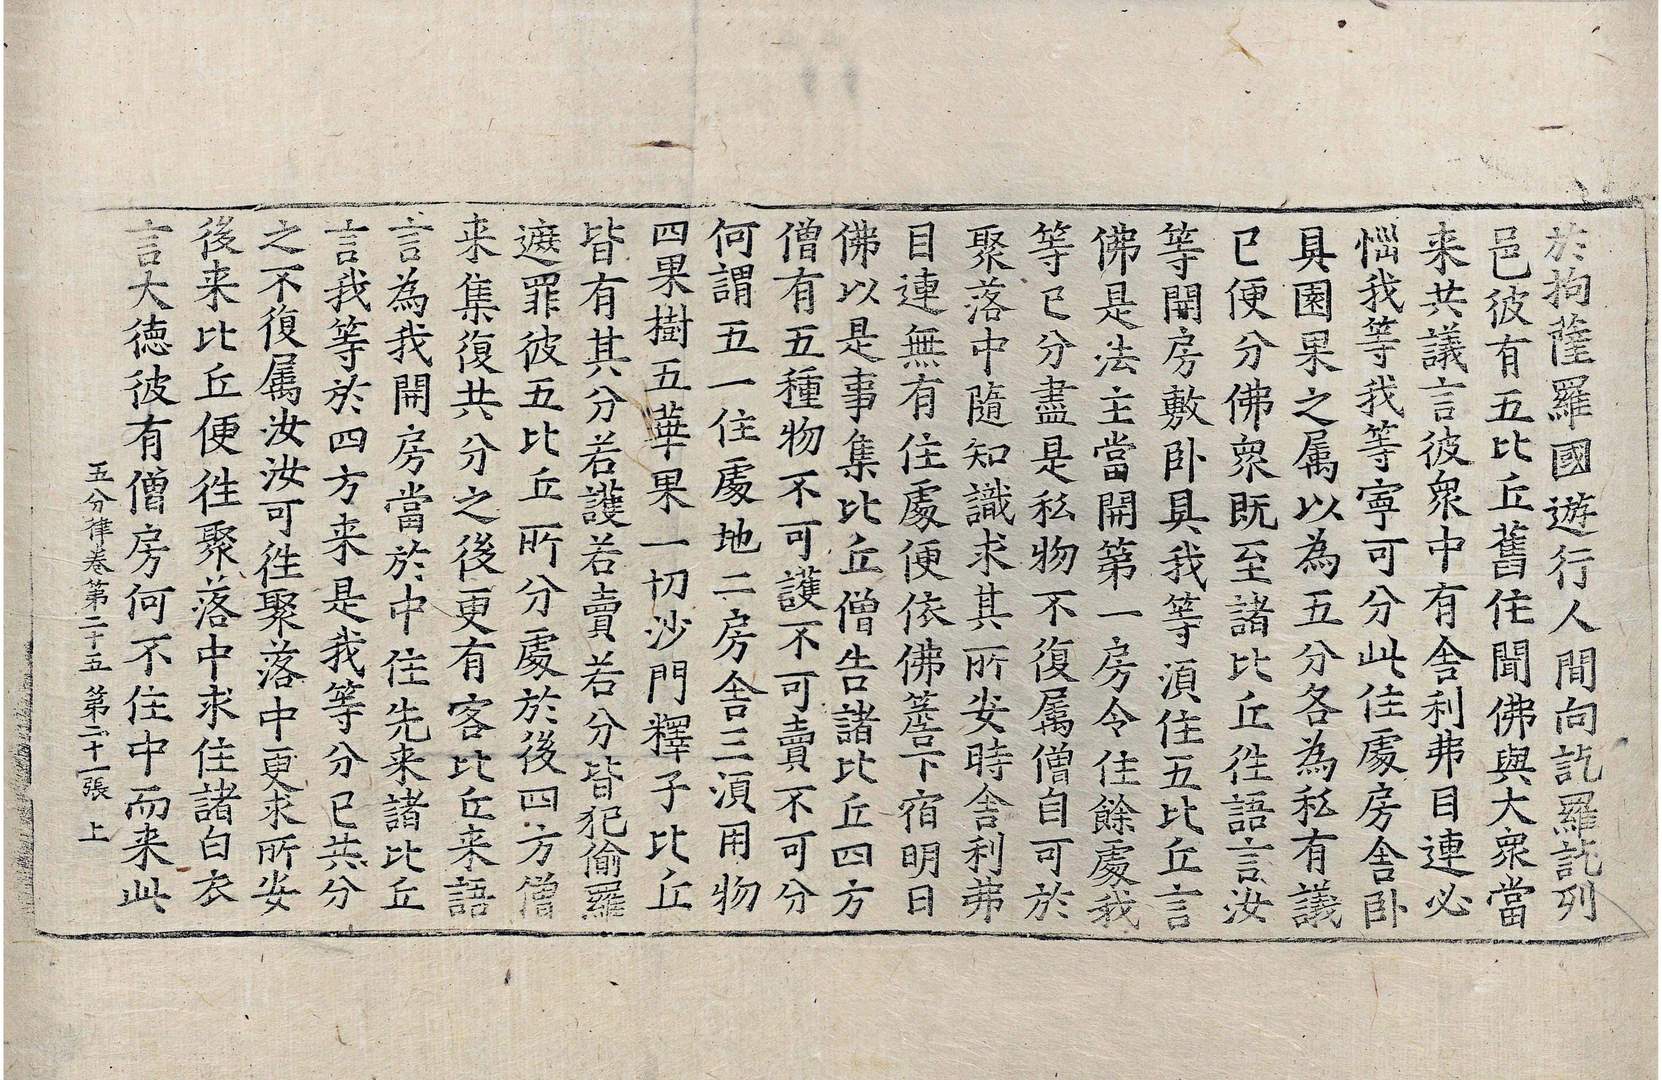 於拘薩羅國遊行人間向訖羅訖列
邑彼有五比丘舊住聞佛與大衆當
来共議言彼衆中有舍利弗目連必
惱我等我等寧可分此住處房舍卧
具園果之属以為五分各為私有議
已便分佛衆既至諸比丘徃語言汝
等開房敷卧具我等湏住五比丘言
佛是法主當開第一房令住餘處我
等已分盡是私物不復属僧自可於
聚落中隨知識求其所安時舍利弗
目連無有住處便依佛簷下宿明日
佛以是事集比丘僧告諸比丘四方
僧有五種物不可護不可賣不可分
何謂五一住處地二房舍三湏用物
四果樹五華果一切沙門釋子比丘
皆有其分若護若賣若分皆犯偷羅
遮罪彼五比丘所分處於後四方僧
来集復共分之後更有客比丘来語
言為我開房當於中住先来諸比丘
言我等於四方来是我等分已共分
之不復属汝汝可徃聚落中更求所安
後来比丘便徃聚落中求住諸白衣
言大德彼有僧房何不住中而来此
五分律卷第二十五 第二十一張 上